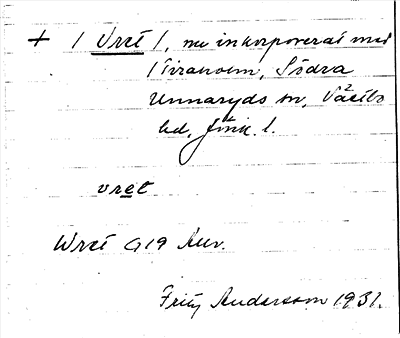 + / Vret /, nu inkorporerat med
/ Tiraholm, Södra
Unnaryds sn, Västbo
hd, Jönk. l.
vret
Wret G19 Auv.
Fritz Andersson 1931.